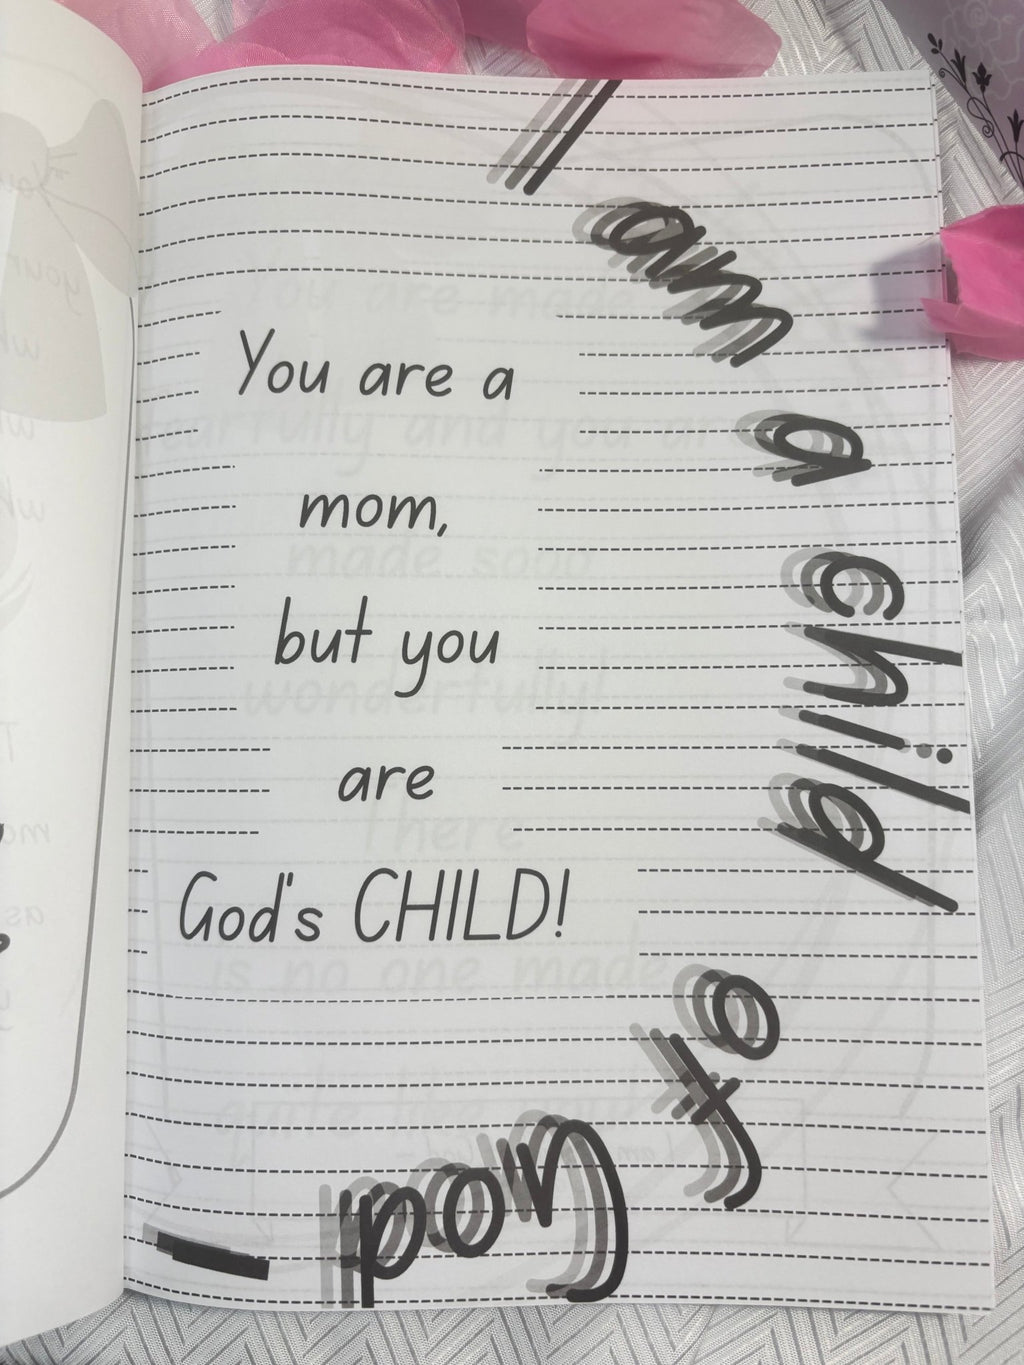 You are a
mom,
but you
are
God's CHILD!
I am a child of God -